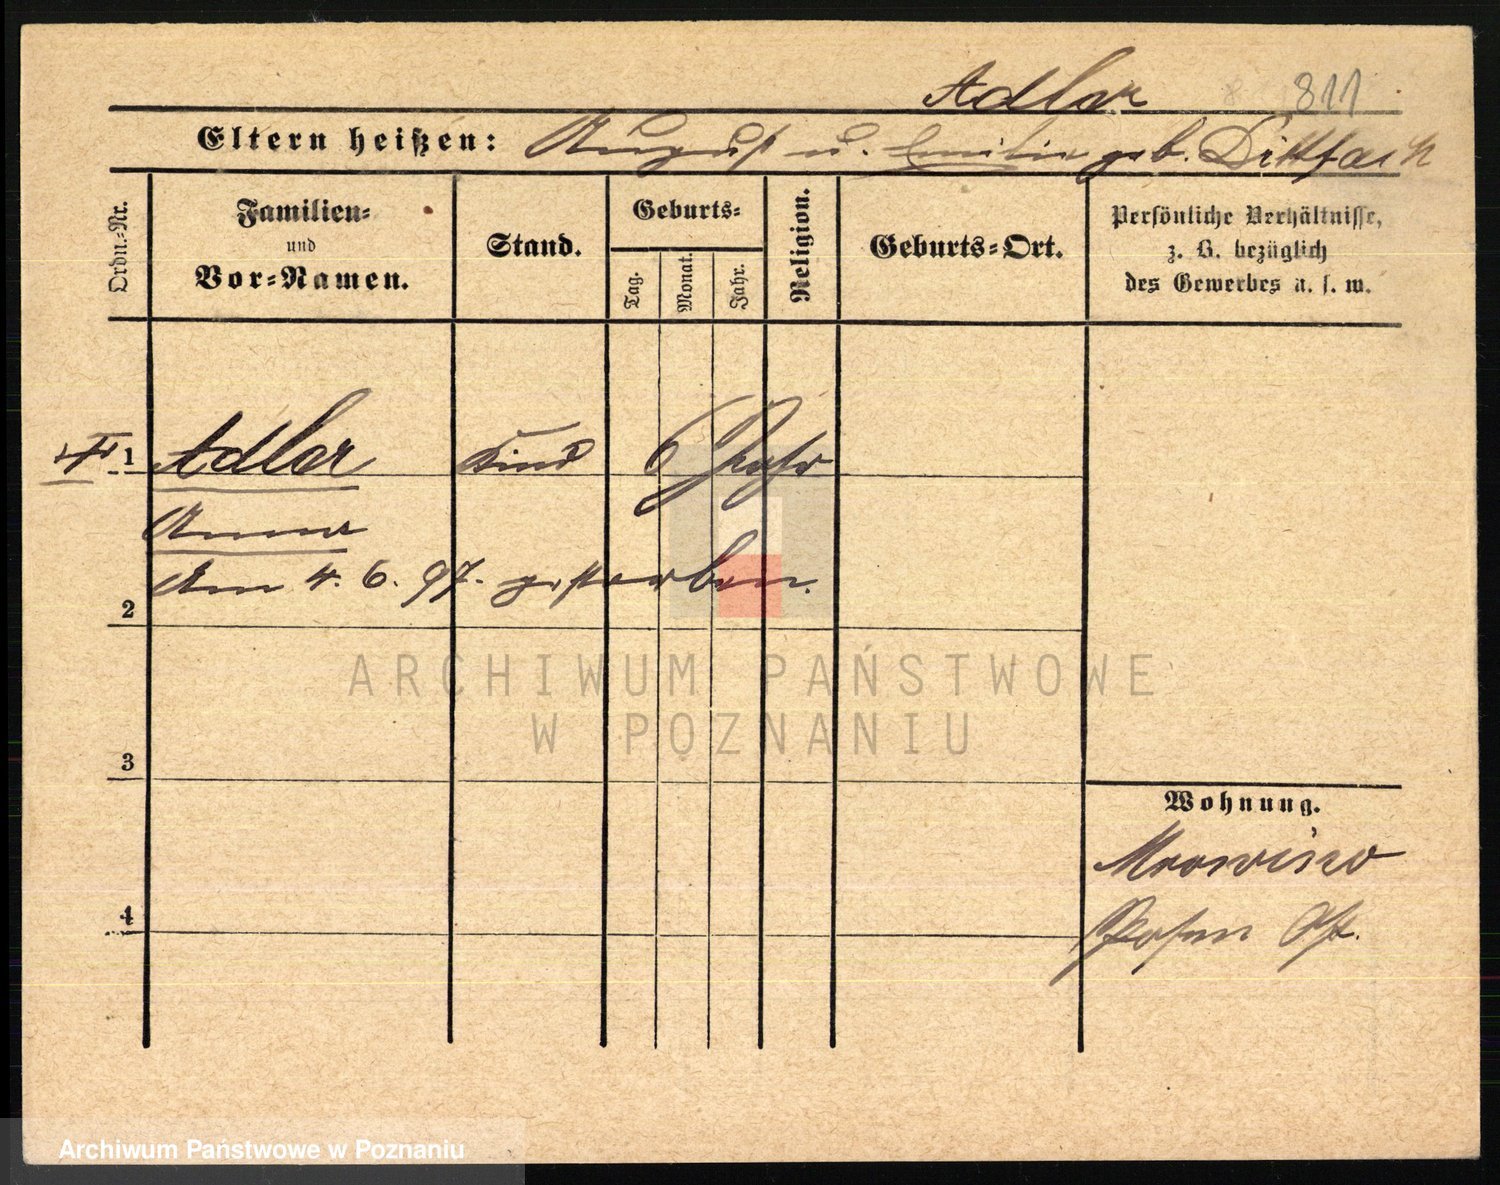 Adler 811
Eltern heißen: August u. Emilie geb. Dittfach
Ordn.-Nr.
Familien-
und
Vor-Namen.
Stand.
Geburts-
Tag.
Monat.
Jahr.
Religion.
Geburts-Ort.
Persönliche Verhältnisse,
z. B. bezüglich
des Gewerbes u. s. w.
1 Adler Kind 6 Jahr
Anna
Am 4. 6. 97. gestorben.
2
ARCHIWUM PAŃSTWOWE
W POZNANIU
3
Wohnung.
Mrowino
4
Posen Ost.
Archiwum Państwowe w Poznaniu